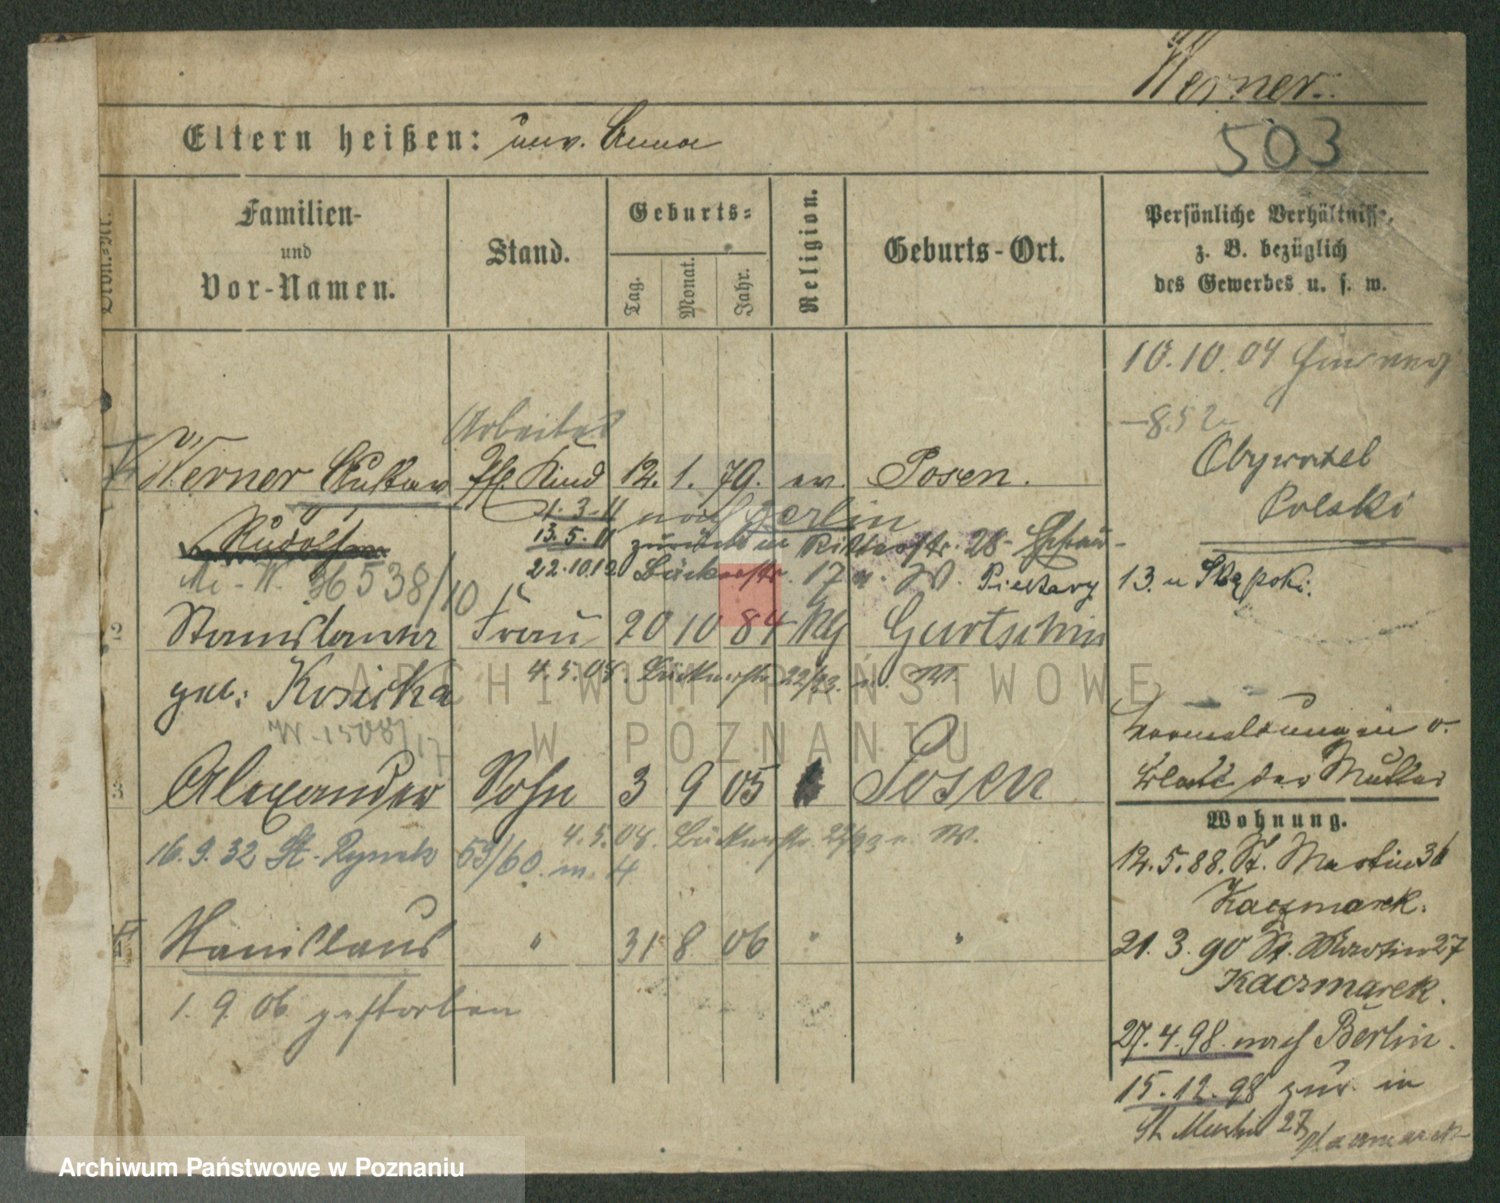 Werner.
503
Eltern heißen: unv. Anna
Familien-
und
Vor-Namen.
Stand.
Geburts-
Tag.
Monat.
Jahr.
Religion.
Geburts-Ort.
Persönliche Verhältnisse,
z. B. bezüglich
des Gewerbes u. s. w.
10.10.04
Arbeiter
Werner Gustav Pfl. Kind 12. 1. 79. ev. Posen.
Obywatel
Polski
1.3.11 nach Berlin
Rudolf
13.5.11 zurück in Ritterstr. 28
36538/10
22.10.12 Bäckerstr. 17 W. Piekary 13.
2 Stanislawa Frau 20 10 84 Gurtschin
geb: Kosicka
4.5.08. Bäckerstr. 22/23. W.
W. 1508/17
3 Alexander Sohn 3 9 05 Posen
der Mutter
Wohnung.
4.5.08. Bäckerstr. 22/23 W.
16.9.32 St. Rynek 59/60 m. 4
12.5.88. St. Martin 36
Kaczmarek.
4 Stanislaus " 31 8 06 " "
21.3.90 St. Martin 27
Kaczmarek.
1.9.06 gestorben
27.4.98 nach Berlin.
15.12.98 zur. in
St. Martin 27 Kaczmarek
ARCHIWUM PAŃSTWOWE
W POZNANIU
Archiwum Państwowe w Poznaniu